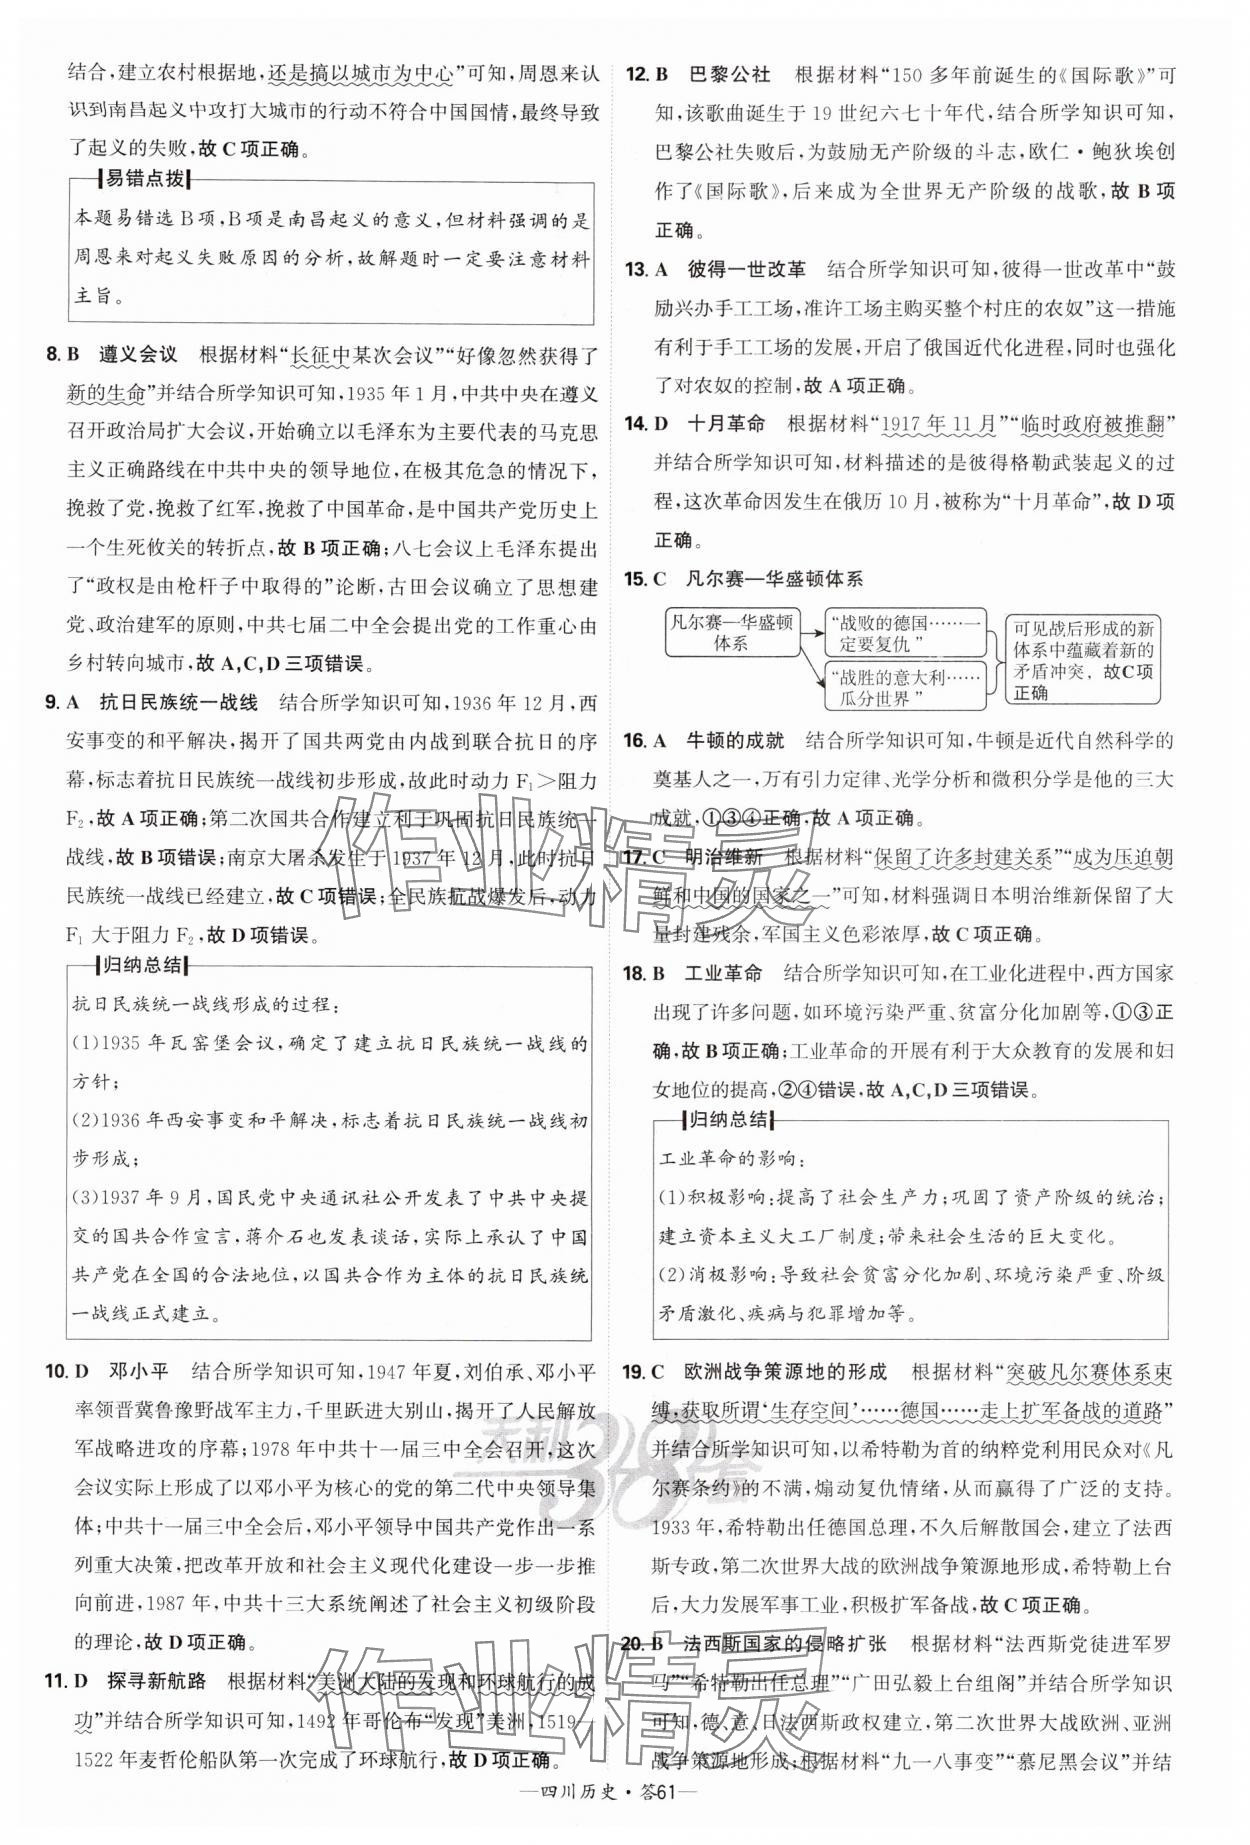 结合,建立农村根据地,还是搞以城市为中心”可知,周恩来认
识到南昌起义中攻打大城市的行动不符合中国国情,最终导致
了起义的失败,故C项正确。
易错点拨
本题易错选B项,B项是南昌起义的意义,但材料强调的是
周恩来对起义失败原因的分析,故解题时一定要注意材料
主旨。
8. B 遵义会议 根据材料“长征中某次会议”“好像忽然获得了
新的生命”并结合所学知识可知,1935年1月,中共中央在遵义
召开政治局扩大会议,开始确立以毛泽东为主要代表的马克思
主义正确路线在中共中央的领导地位,在极其危急的情况下,
挽救了党,挽救了红军,挽救了中国革命,是中国共产党历史上
一个生死攸关的转折点,故B项正确;八七会议上毛泽东提出
了“政权是由枪杆子中取得的”论断,古田会议确立了思想建
党、政治建军的原则,中共七届二中全会提出党的工作重心由
乡村转向城市,故A,C,D三项错误。
9. A 抗日民族统一战线 结合所学知识可知,1936年12月,西
安事变的和平解决,揭开了国共两党由内战到联合抗日的序
幕,标志着抗日民族统一战线初步形成,故此时动力F₁>阻力
F₂,故A项正确;第二次国共合作建立利于巩固抗日民族统一
战线,故B项错误;南京大屠杀发生于1937年12月,此时抗日
民族统一战线已经建立,故C项错误;全民族抗战爆发后,动力
F₁大于阻力F₂,故D项错误。
归纳总结
抗日民族统一战线形成的过程:
(1)1935年瓦窑堡会议,确定了建立抗日民族统一战线的
方针;
(2)1936年西安事变和平解决,标志着抗日民族统一战线初
步形成;
(3)1937年9月,国民党中央通讯社公开发表了中共中央提
交的国共合作宣言,蒋介石也发表谈话,实际上承认了中国
共产党在全国的合法地位,以国共合作为主体的抗日民族统
一战线正式建立。
10. D 邓小平 结合所学知识可知,1947年夏,刘伯承、邓小平
率领晋冀鲁豫野战军主力,千里跃进大别山,揭开了人民解放
军战略进攻的序幕;1978年中共十一届三中全会召开,这次
会议实际上形成了以邓小平为核心的党的第二代中央领导集
体;中共十一届三中全会后,邓小平领导中国共产党作出一系
列重大决策,把改革开放和社会主义现代化建设一步一步推
向前进,1987年,中共十三大系统阐述了社会主义初级阶段
的理论,故D项正确。
11. D 探寻新航路 根据材料“美洲大陆的发现和环球航行的成
功”并结合所学知识可知,1492年哥伦布“发现”美洲,1519—
1522年麦哲伦船队第一次完成了环球航行,故D项正确。
12. B 巴黎公社 根据材料“150多年前诞生的《国际歌》”可
知,该歌曲诞生于19世纪六七十年代,结合所学知识可知,
巴黎公社失败后,为鼓励无产阶级的斗志,欧仁·鲍狄埃创
作了《国际歌》,后来成为全世界无产阶级的战歌,故B项
正确。
13. A 彼得一世改革 结合所学知识可知,彼得一世改革中“鼓
励兴办手工工场,准许工场主购买整个村庄的农奴”这一措施
有利于手工工场的发展,开启了俄国近代化进程,同时也强化
了对农奴的控制,故A项正确。
14. D 十月革命 根据材料“1917年11月”“临时政府被推翻”
并结合所学知识可知,材料描述的是彼得格勒武装起义的过
程,这次革命因发生在俄历10月,被称为“十月革命”,故D项
正确。
15. C 凡尔赛—华盛顿体系
凡尔赛—华盛顿
体系
“战败的德国……一
定要复仇”
“战胜的意大利……
瓜分世界”
可见战后形成的新
体系中蕴藏着新的
矛盾冲突,故C项
正确
16. A 牛顿的成就 结合所学知识可知,牛顿是近代自然科学的
奠基人之一,万有引力定律、光学分析和微积分学是他的三大
成就,①③④正确,故A项正确。
17. C 明治维新 根据材料“保留了许多封建关系”“成为压迫朝
鲜和中国的国家之一”可知,材料强调日本明治维新保留了大
量封建残余,军国主义色彩浓厚,故C项正确。
18. B 工业革命 结合所学知识可知,在工业化进程中,西方国家
出现了许多问题,如环境污染严重、贫富分化加剧等,①③正
确,故B项正确;工业革命的开展有利于大众教育的发展和妇
女地位的提高,②④错误,故A,C,D三项错误。
归纳总结
工业革命的影响:
(1)积极影响:提高了社会生产力;巩固了资产阶级的统治;
建立资本主义大工厂制度;带来社会生活的巨大变化。
(2)消极影响:导致社会贫富分化加剧、环境污染严重、阶级
矛盾激化、疾病与犯罪增加等。
19. C 欧洲战争策源地的形成 根据材料“突破凡尔赛体系束
缚,获取所谓‘生存空间’……德国……走上扩军备战的道路”
并结合所学知识可知,以希特勒为首的纳粹党利用民众对《凡
尔赛条约》的不满,煽动复仇情绪,从而赢得了广泛的支持。
1933年,希特勒出任德国总理,不久后解散国会,建立了法西
斯专政,第二次世界大战的欧洲战争策源地形成,希特勒上台
后,大力发展军事工业,积极扩军备战,故C项正确。
20. B 法西斯国家的侵略扩张 根据材料“法西斯党徒进军罗
马”“希特勒出任总理”“广田弘毅上台组阁”并结合所学知识
可知,德、意、日法西斯政权建立,第二次世界大战欧洲、亚洲
战争策源地形成;根据材料“九一八事变”“慕尼黑会议”并结
—四川历史·答61—
作业精灵
天利38套
作业精灵